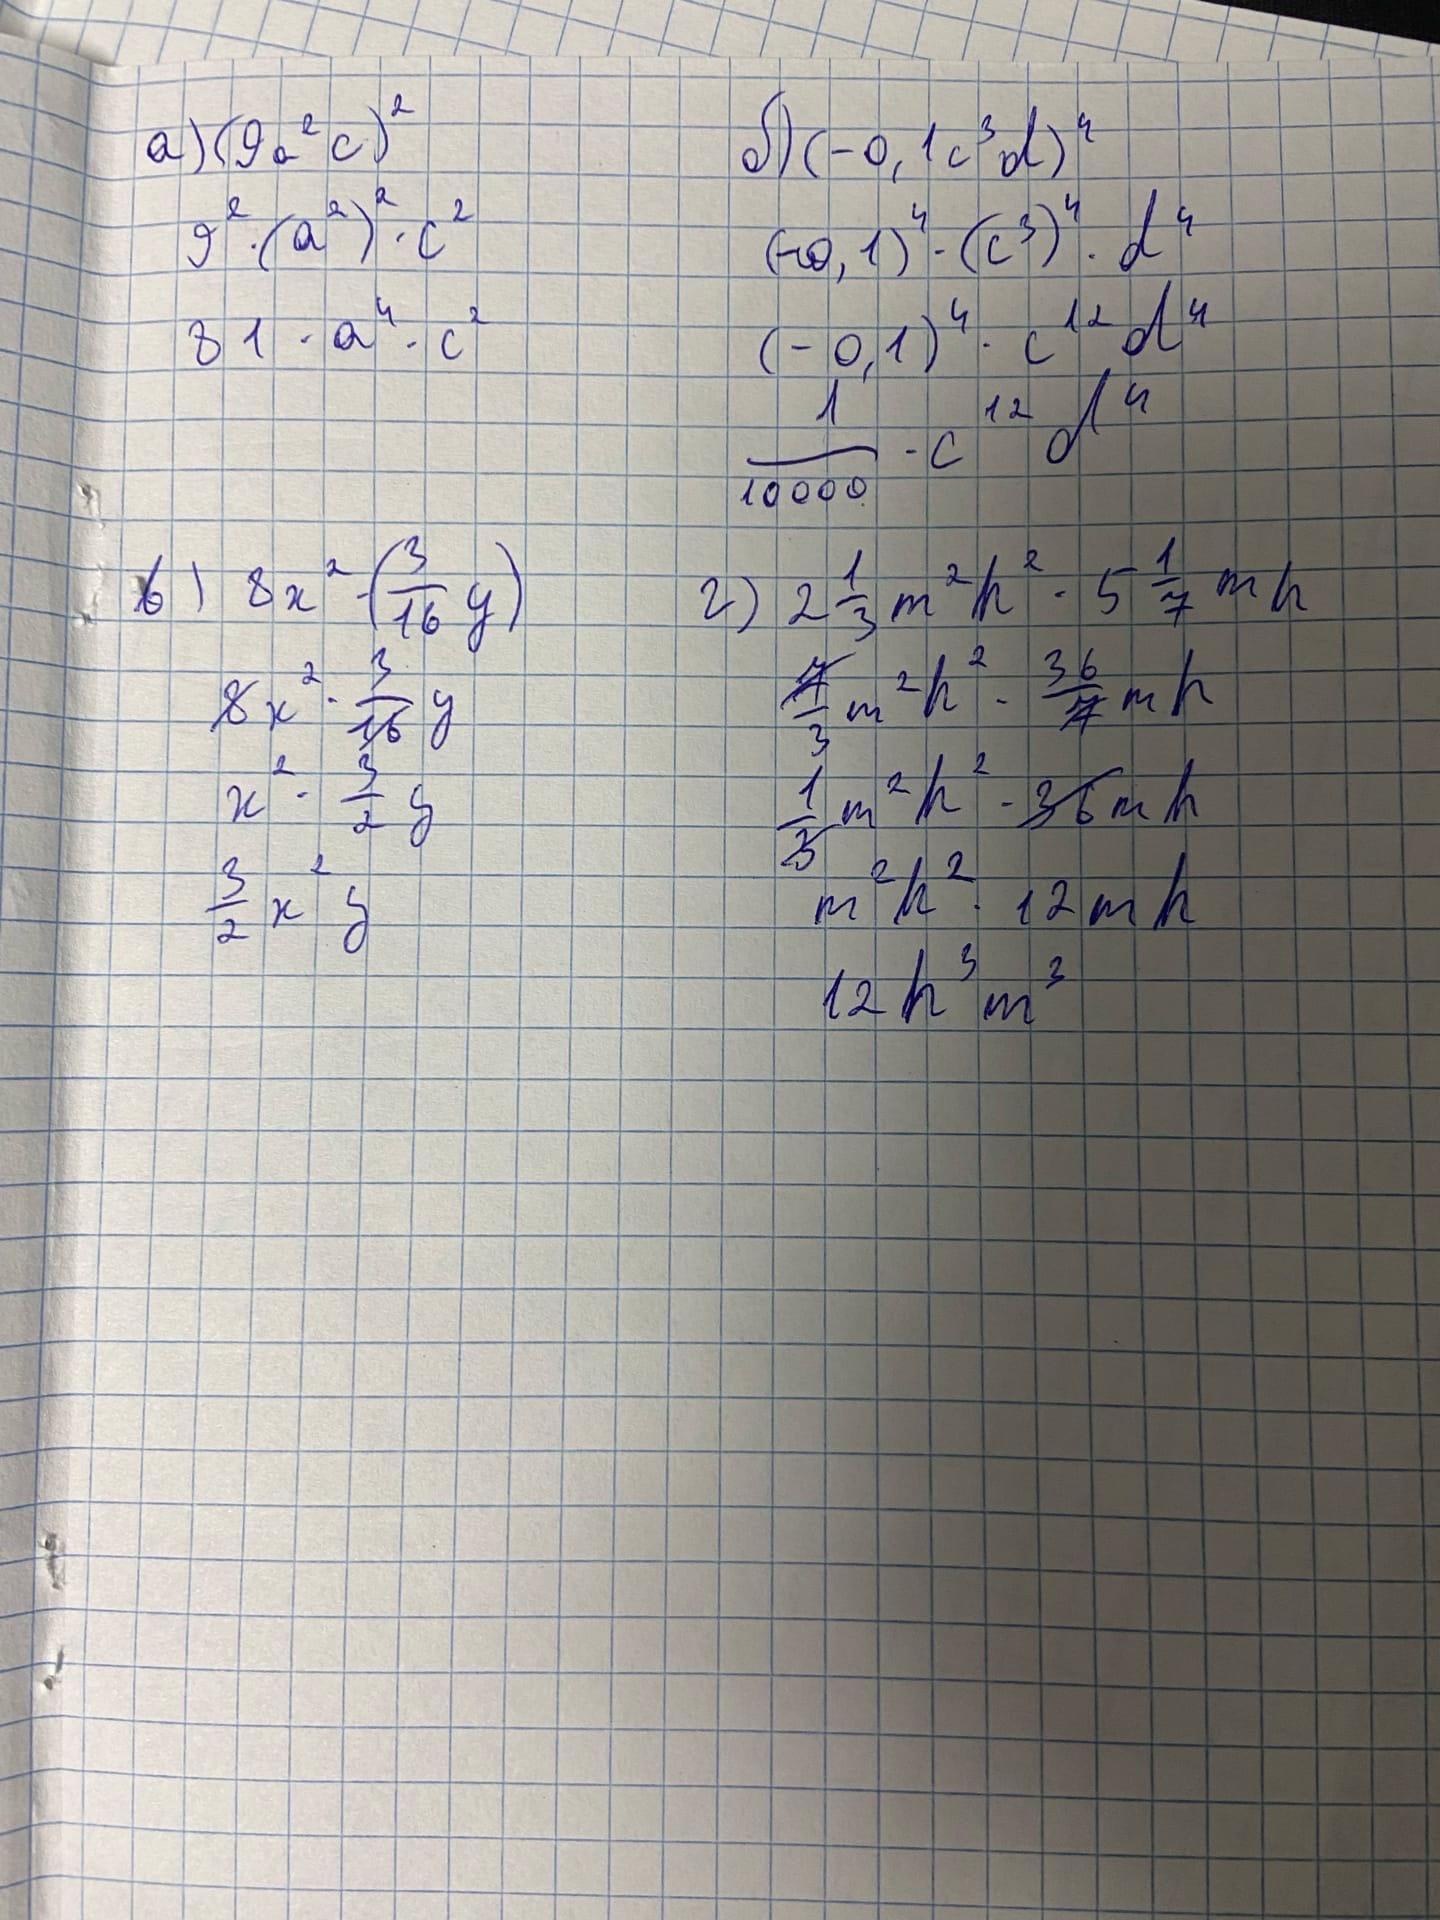 а) (9a²c)²
9² · (a²)² · c²
81 · a⁴ · c²
б) (-0,1c³d)⁴
(-0,1)⁴ · (c³)⁴ · d⁴
(-0,1)⁴ · c¹² d⁴
1/10000 · c¹² d⁴
в) 8x² · (3/16 y)
8x² · 3/16 y
x² · 3/2 y
3/2 x² y
г) 2 1/3 m²h² · 5 1/7 mh
7/3 m²h² · 36/7 mh
1/3 m²h² · 36mh
m²h² · 12mh
12h³m³